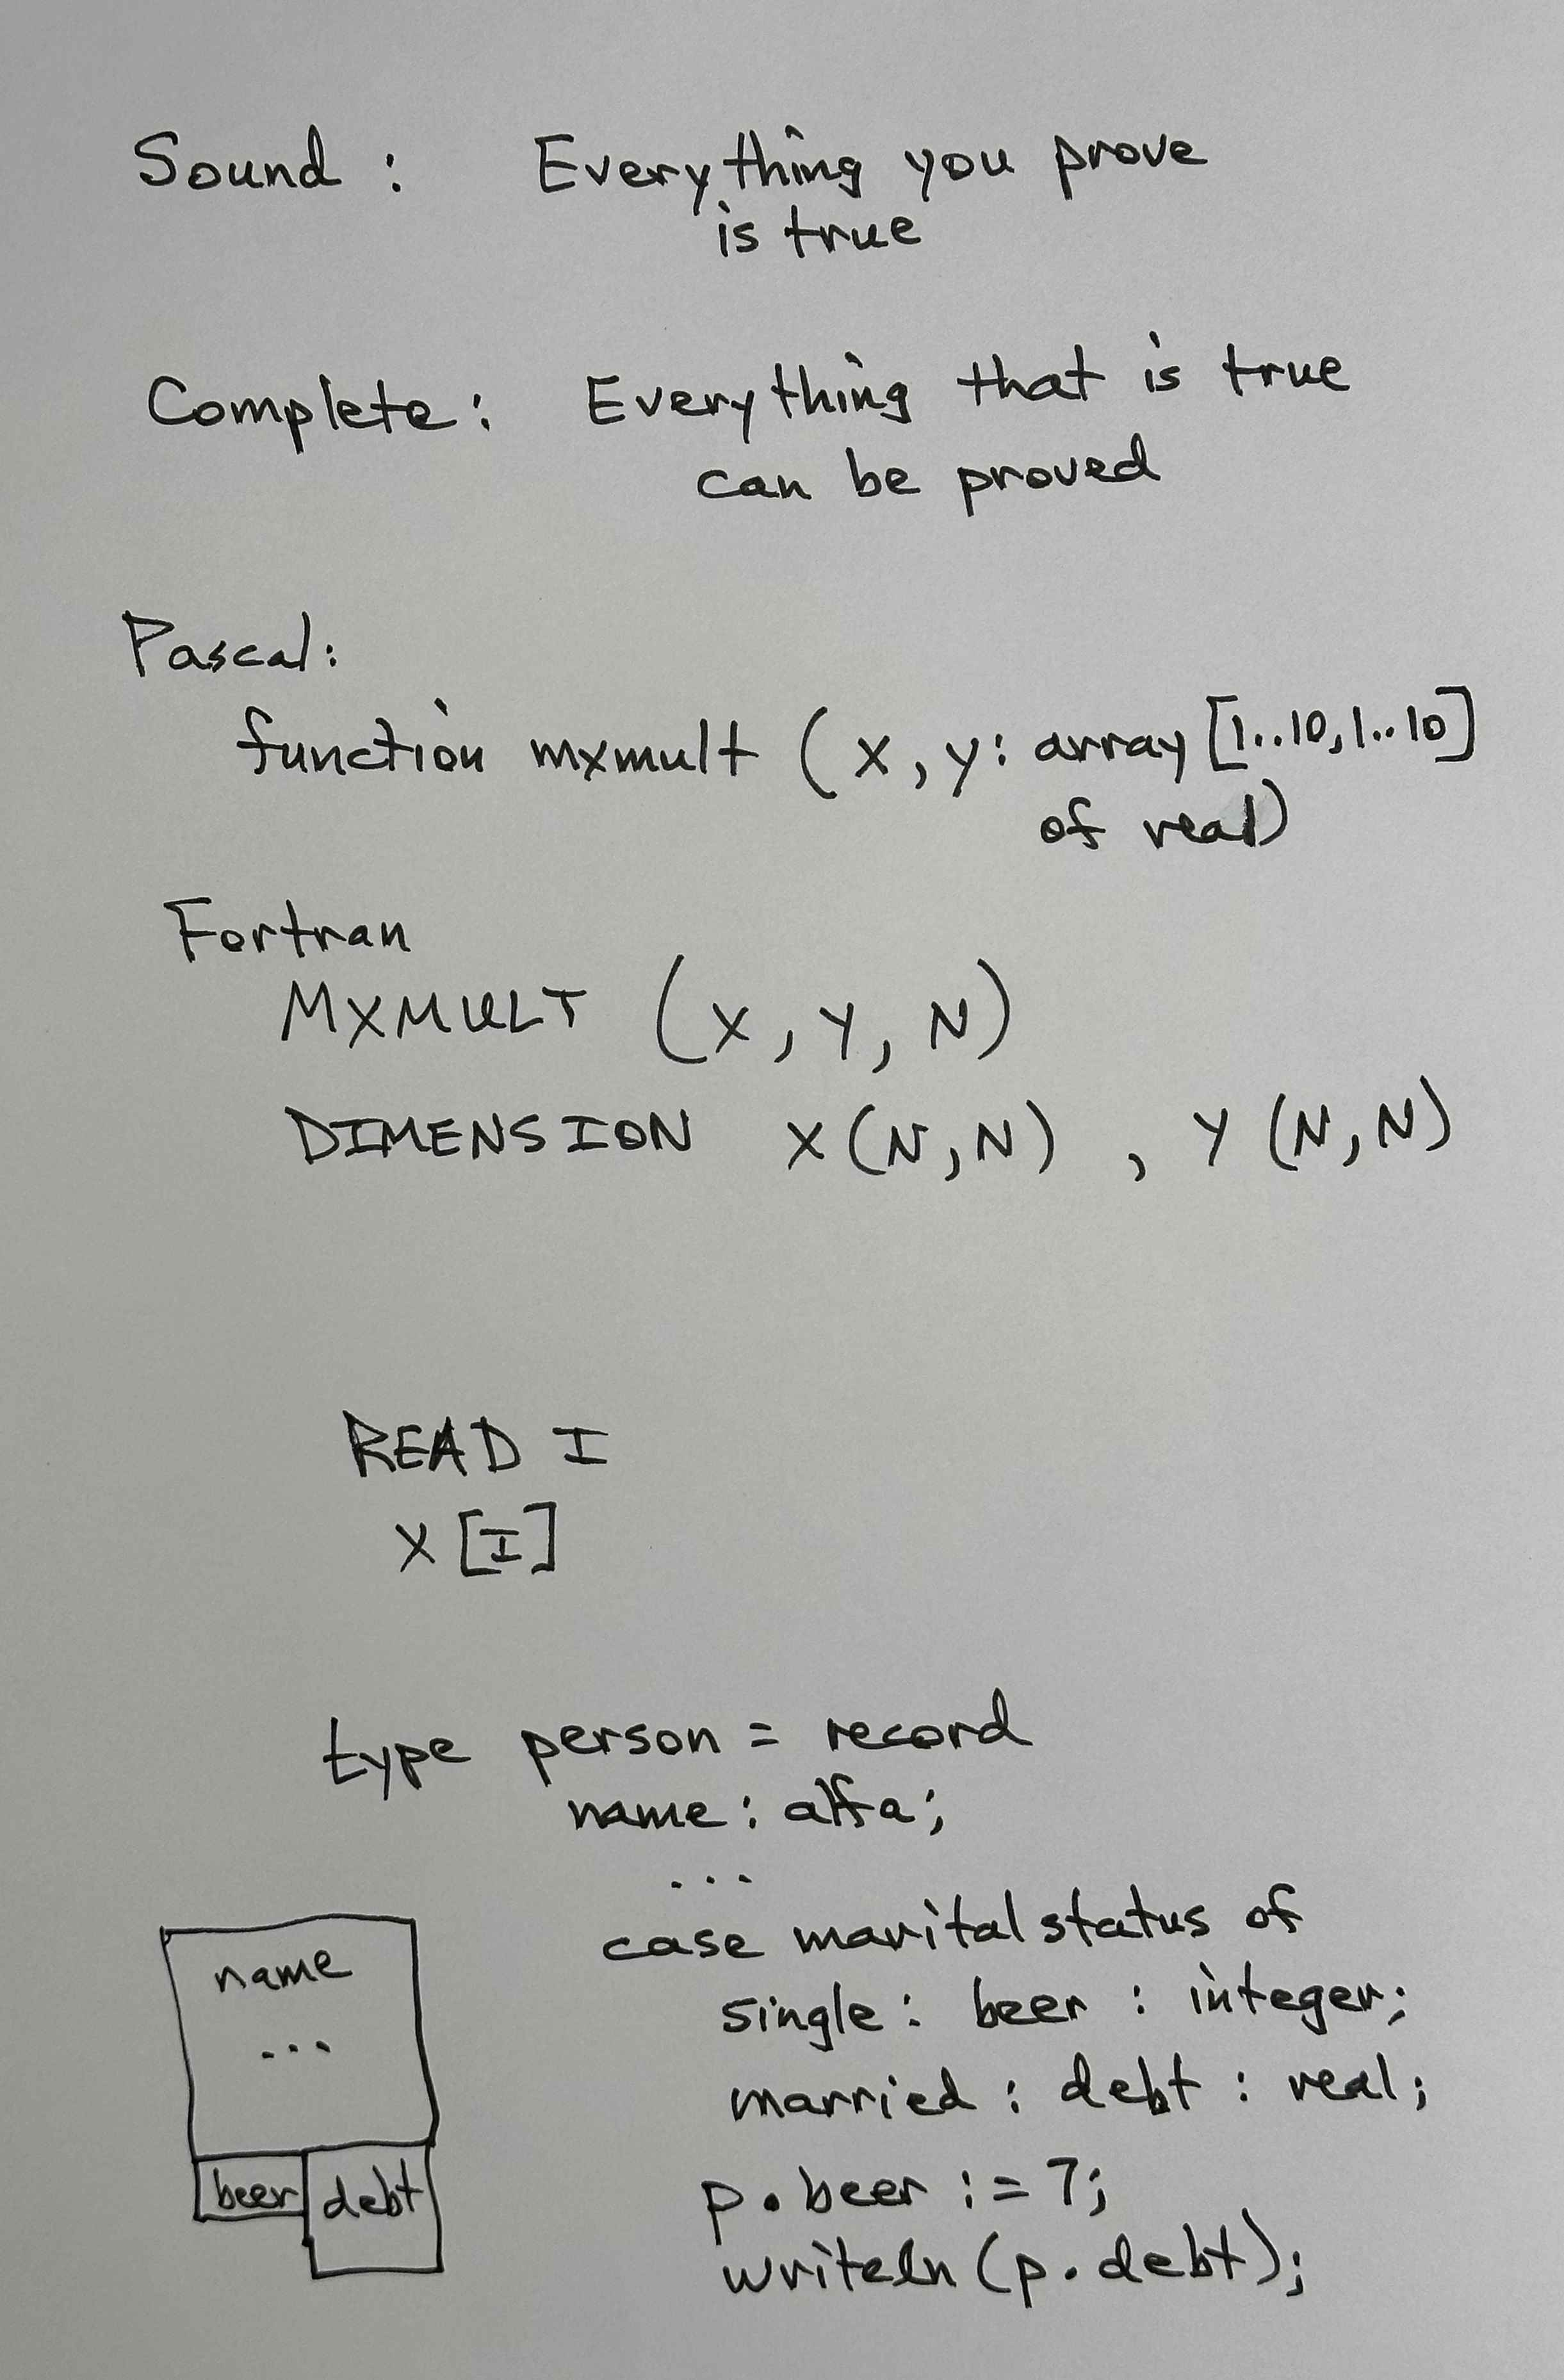 Sound : Everything you prove
is true
Complete: Everything that is true
can be proved
Pascal:
function mxmult (x, y: array [1..10, 1..10]
of real)
Fortran
MXMULT (X, Y, N)
DIMENSION X(N,N) , Y (N,N)
READ I
X [I]
type person = record
name : alfa;
...
case marital status of
single : beer : integer;
married : debt : real;
p.beer := 7;
writeln (p.debt);
name
...
beer debt